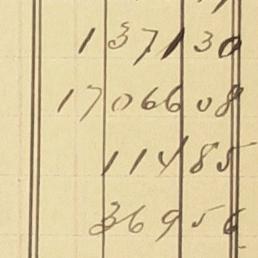 1 371 30
17 066 08
114 85
369 56